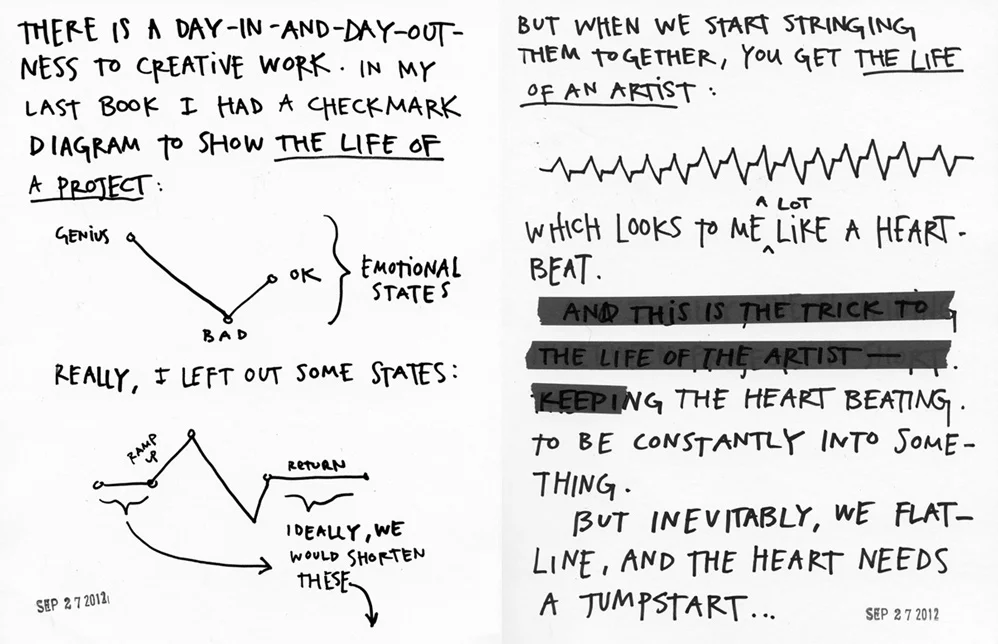 THERE IS A DAY-IN-AND-DAY-OUT-
NESS TO CREATIVE WORK. IN MY
LAST BOOK I HAD A CHECKMARK
DIAGRAM TO SHOW THE LIFE OF
A PROJECT:
GENIUS
OK
BAD
EMOTIONAL
STATES
REALLY, I LEFT OUT SOME STATES:
RAMP
UP
RETURN
IDEALLY, WE
WOULD SHORTEN
THESE
SEP 27 2012
BUT WHEN WE START STRINGING
THEM TOGETHER, YOU GET THE LIFE
OF AN ARTIST:
A LOT
WHICH LOOKS TO ME ^ LIKE A HEART-
BEAT.
AND THIS IS THE TRICK TO
THE LIFE OF THE ARTIST —
KEEPING THE HEART BEATING.
TO BE CONSTANTLY INTO SOME-
THING.
BUT INEVITABLY, WE FLAT-
LINE, AND THE HEART NEEDS
A JUMPSTART...
SEP 27 2012